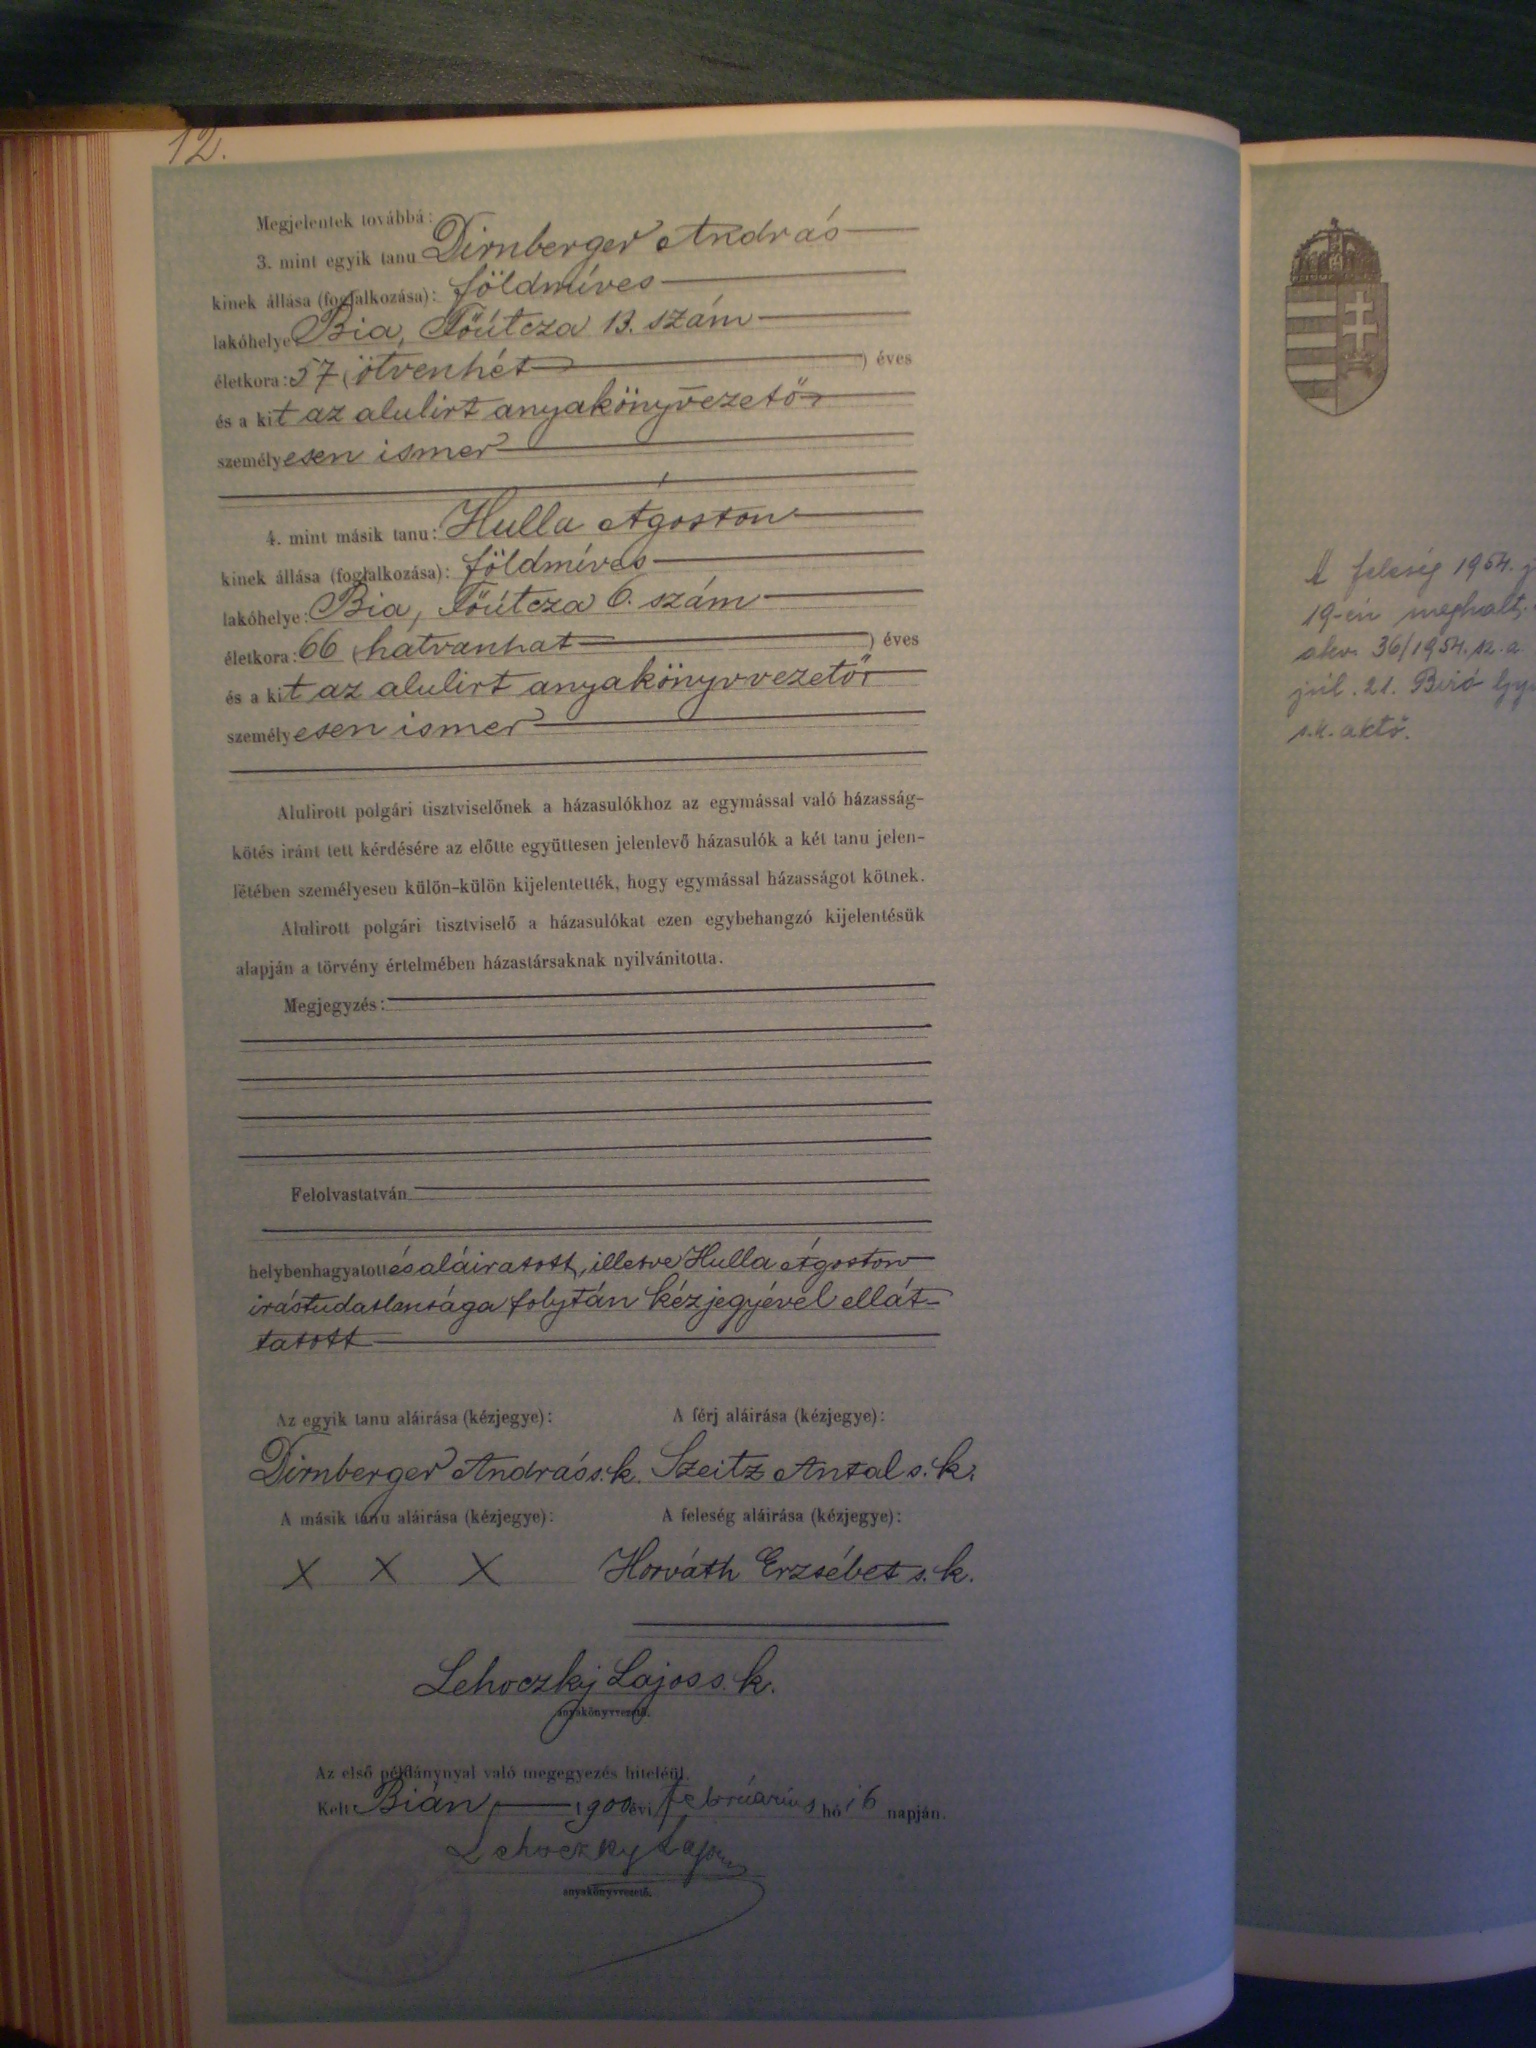 12.
Megjelentek továbbá:
3. mint egyik tanu Dirnberger András
kinek állása (foglalkozása): földmíves
lakóhelye Bia, Főútcza 13. szám
életkora: 57 (ötvenhét ) éves
és a kit az alulirt anyakönyvezető
személyesen ismer
4. mint másik tanu: Hulla Ágoston
kinek állása (foglalkozása): földmíves
lakóhelye: Bia, Főútcza 6. szám
életkora: 66 (hatvanhat ) éves
és a kit az alulirt anyakönyvvezető
személyesen ismer
Alulirott polgári tisztviselőnek a házasulókhoz az egymással való házasság-
kötés iránt tett kérdésére az előtte együttesen jelenlevő házasulók a két tanu jelen-
létében személyesen külön-külön kijelentették, hogy egymással házasságot kötnek.
Alulirott polgári tisztviselő a házasulókat ezen egybehangzó kijelentésük
alapján a törvény értelmében házastársaknak nyilvánitotta.
Megjegyzés:
Felolvastatván
helybenhagyatott és aláiratott, illetve Hulla Ágoston
irástudatlansága folytán kézjegyével ellát-
tatott
Az egyik tanu aláirása (kézjegye): A férj aláirása (kézjegye):
Dirnberger András s. k. Szeitz Antal s. k.
A másik tanu aláirása (kézjegye): A feleség aláirása (kézjegye):
X X X Horváth Erzsébet s. k.
Lehoczky Lajos s. k.
anyakönyvvezető.
Az első példánynyal való megegyezés hiteléül.
Kelt Bián, 1900 évi februárius hó 16 napján.
Lehoczky Lajos
anyakönyvvezető.
A feleség 1954.
19-én meghalt,
akv. 36/1954. sz. a.
júl. 21. Biró
s.k. aktő.